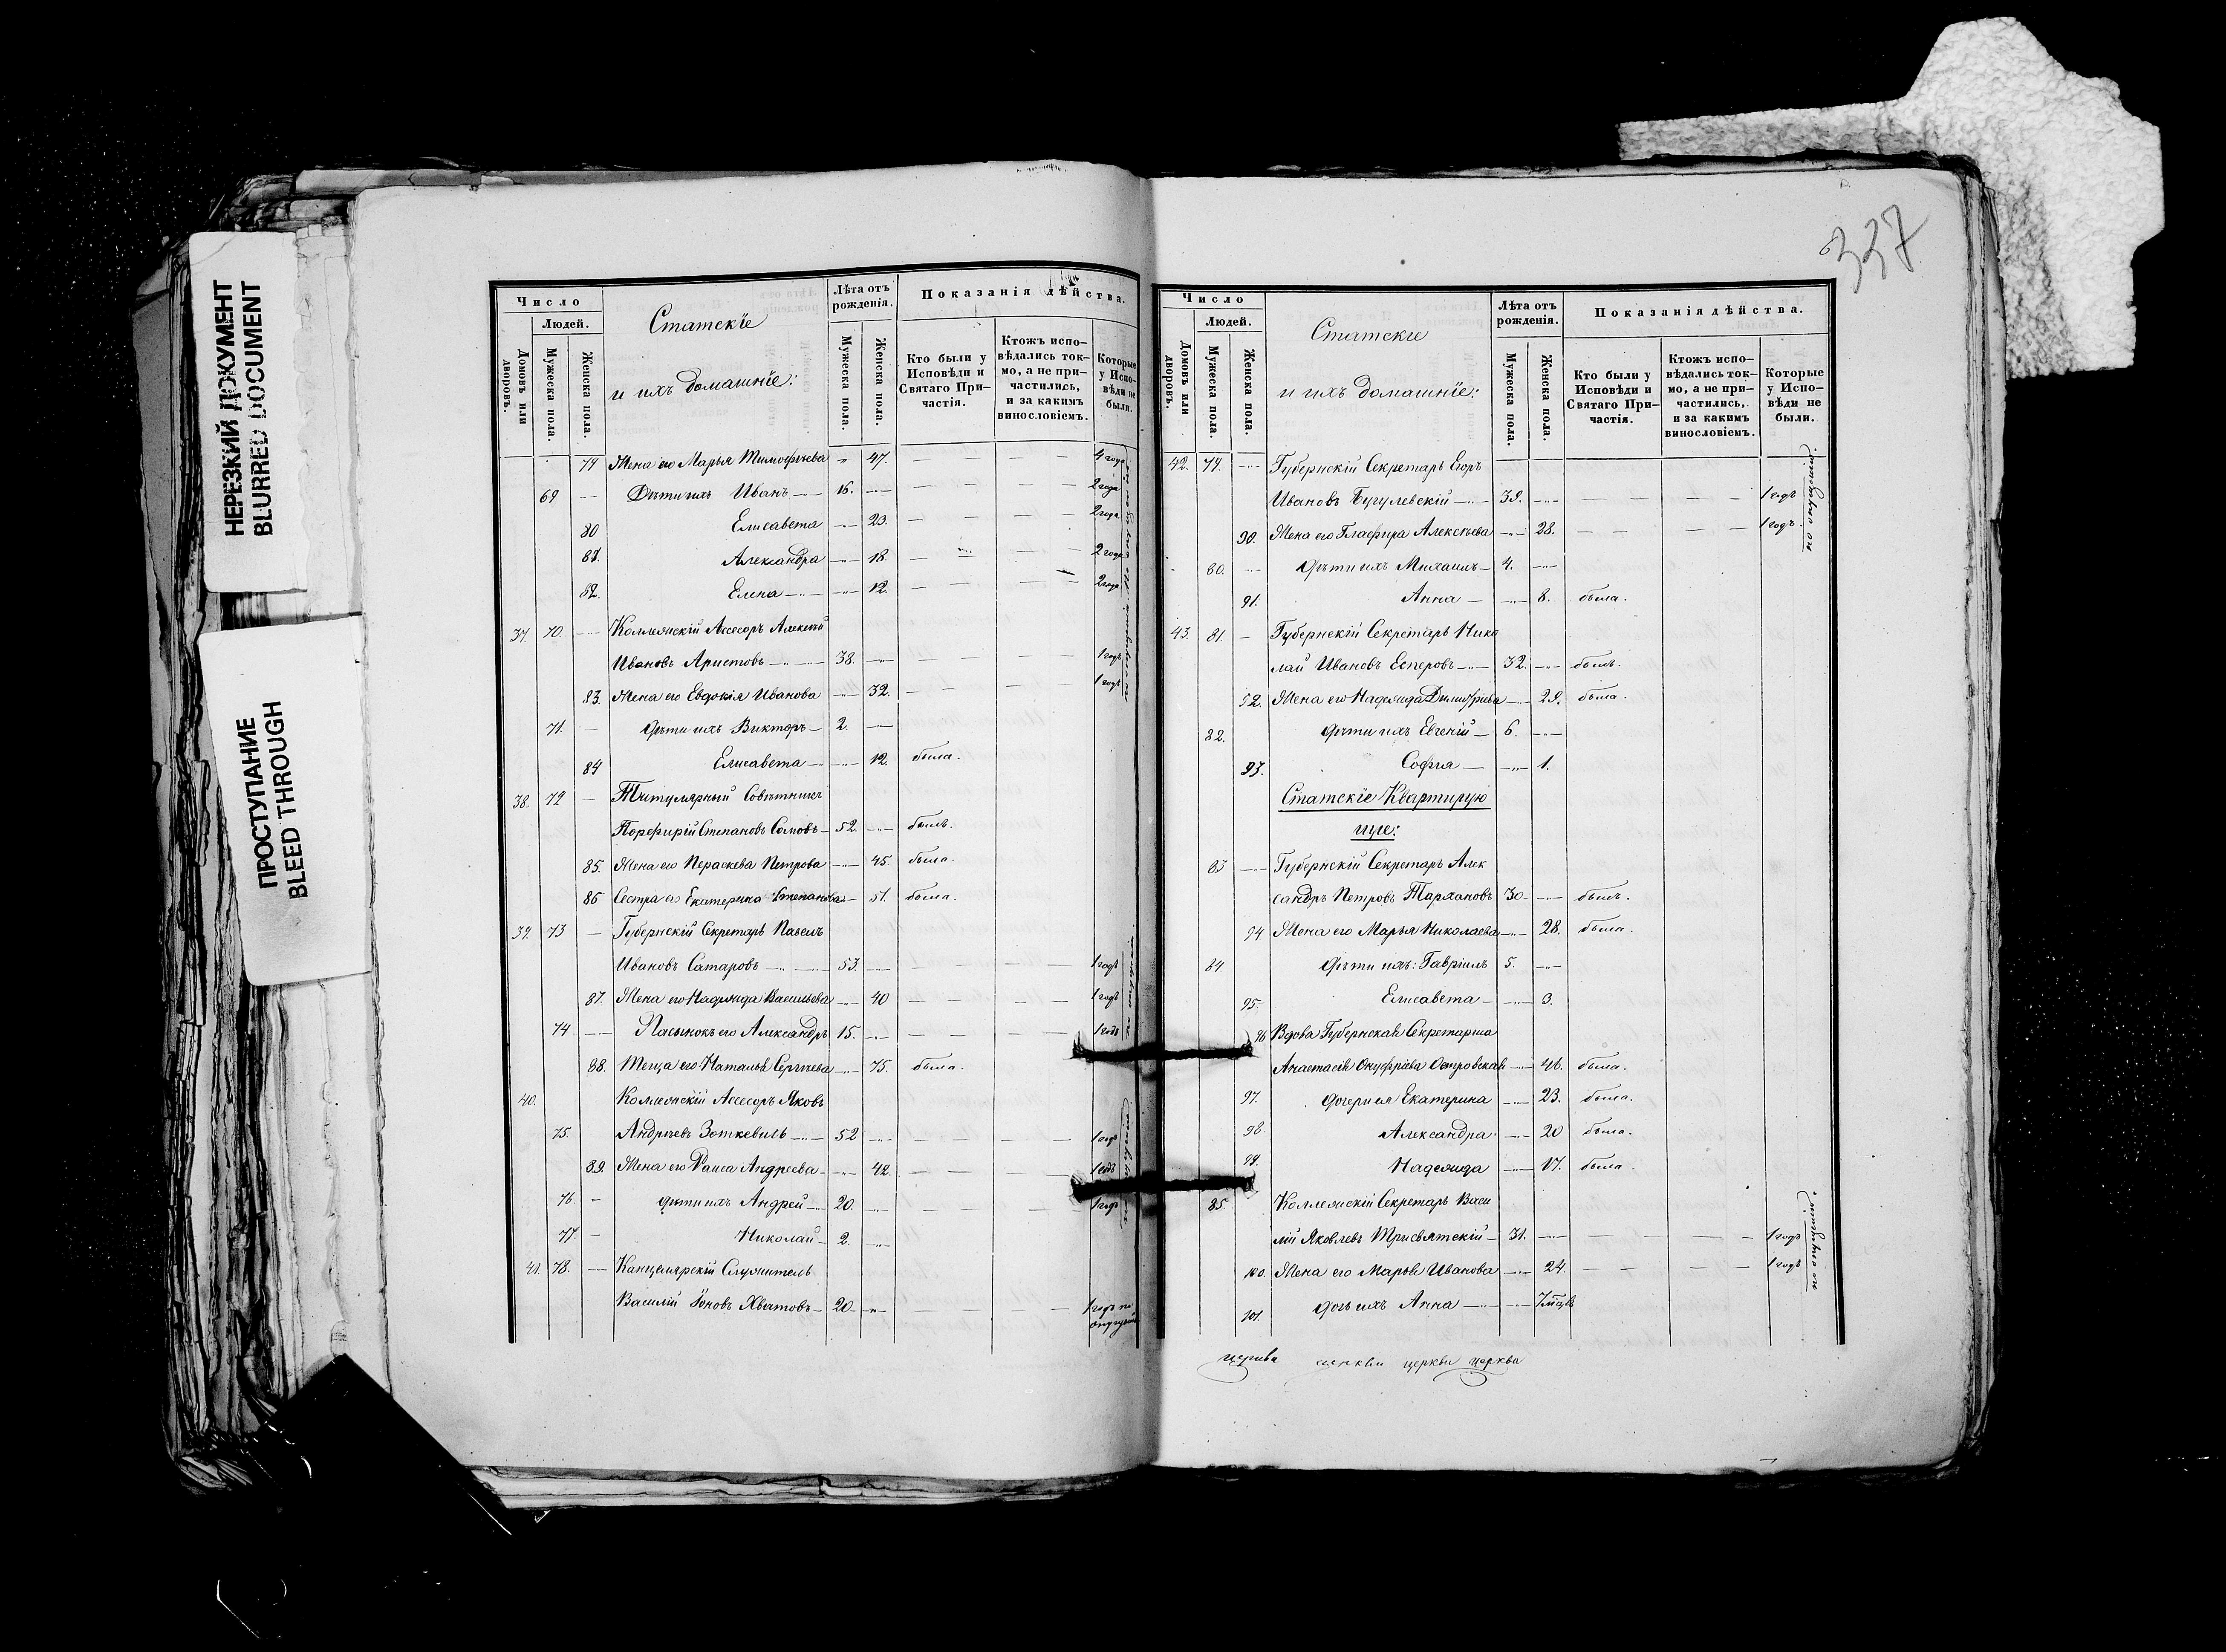 НЕРЕЗКИЙ ДОКУМЕНТ
BLURRED DOCUMENT
ПРОСТУПАНИЕ
BLEED THROUGH
Число
Людей.
Домовъ или дворовъ.
Мужеска пола.
Женска пола.
Статскіе
и ихъ домашніе:
Лѣта отъ рожденія.
Мужеска пола.
Женска пола.
Показанія дѣйства.
Кто были у Исповѣди и Святаго При-частія.
Ктожъ испо-вѣдались ток-мо, а не при-частились, и за какимъ винословіемъ.
Которые у Испо-вѣди не были.
79 Жена его Марья Тимофѣева 47. 4 года
69 Дѣти ихъ Иванъ 16. 2 года
80 Елисавета 23. 2 года
81. Александра 18. 2 года
82. Елена 12. 2 года
37. 70. Коллежскій Ассесоръ Алексѣй
Ивановъ Аристовъ 38. 1 годъ
83. Жена его Евдокія Иванова 32. 1 годъ
71. Дѣти ихъ Викторъ 2.
84 Елисавета 12. была.
38. 72 Титулярный Совѣтникъ
Порфирій Степановъ Сомовъ 52. былъ.
85. Жена его Пераскева Петрова 45. была.
86 Сестра его Екатерина Степанова 51. была.
39. 73 Губернскій Секретарь Павелъ
Ивановъ Сатаровъ 53. 1 годъ
87. Жена его Надежда Васильева 40 1 годъ
74 Пасынокъ его Александръ 15. 1 годъ
88. Теща его Наталья Сергѣева 75. была.
40. Коллежскій Ассесоръ Яковъ
75. Андреевъ Зоткевичь 52 1 годъ
89. Жена его Раиса Андреева 42. 1 годъ
76. Дѣти ихъ Андрей 20. 1 годъ
77. Николай 2.
41. 78. Канцелярскій Служитель
Василій Іоновъ Хватовъ 20 1 годъ по
опущенію
337
Число
Людей.
Домовъ или дворовъ.
Мужеска пола.
Женска пола.
Статскіе
и ихъ домашніе:
Лѣта отъ рожденія.
Мужеска пола.
Женска пола.
Показанія дѣйства.
Кто были у Исповѣди и Святаго При-частія.
Ктожъ испо-вѣдались ток-мо, а не при-частились, и за какимъ винословіемъ.
Которые у Испо-вѣди не были.
42. 79. Губернскій Секретарь Егоръ
Ивановъ Бугулевскій 39. 1 годъ
90. Жена его Глафира Алексѣева 28. 1 годъ.
по опущенію.
80. Дѣти ихъ Михаилъ 4.
91. Анна 8. была.
43. 81. Губернскій Секретарь Нико
лай Ивановъ Есперовъ 32. былъ.
92. Жена его Надежда Димитріева 29. была.
82. Дѣти ихъ Евгеній 6.
93. Софія 1.
Статскіе Квартирую
щіе:
83 Губернскій Секретарь Алек
сандръ Петровъ Тархановъ 30 былъ.
94 Жена его Марья Николаева 28. была.
84. Дѣти ихъ: Гавріилъ 5.
95. Елисавета 3.
96 Вдова Губернская Секретарша
Анастасія Онуфріева Островская 46. была.
97. Дочери ея Екатерина 23. была.
98. Александра 20 была.
99. Надежда 17. была.
85. Коллежскій Секретарь Васи
лій Яковлевъ Трисвятскій 31. 1 годъ
100. Жена его Марья Иванова 24. 1 годъ
по опущенію.
101. Дочь ихъ Анна 7 мѣсяц.
церкви церкви церква